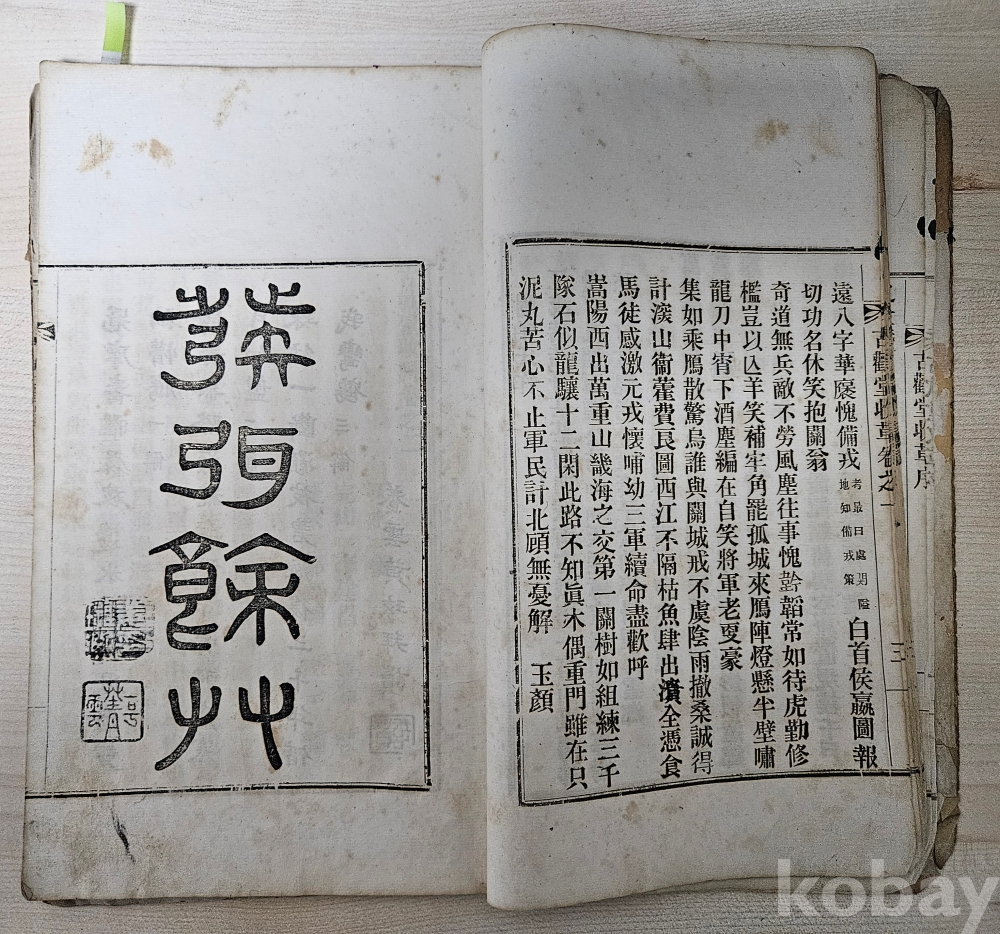 古歡堂收草序
古歡堂收草卷之一
三
遠八字華褒愧備戎
考最曰處閒隘
地知備戎策
白首侯嬴圖報
切功名休笑抱關翁
奇道無兵敵不勞風塵往事愧韜常如待虎勤修
檻豈以亾羊笑補牢角罷孤城來鴈陣燈懸半壁嘯
龍刀中宵下酒塵編在自笑將軍老更豪
集如乘鴈散驚鳥誰與關城戒不虞陰雨撤桑誠得
計溪山衞藿費良圖西江不隔枯魚肆出濆全憑食
馬徒感激元戎懷哺幼三軍續命盡歡呼
嵩陽西出萬重山畿海之交第一關樹如組練三千
隊石似龍驤十二閑此路不知眞木偶重門雖在只
泥丸苦心不止軍民計北顧無憂解 玉顏
餘艸
kobay